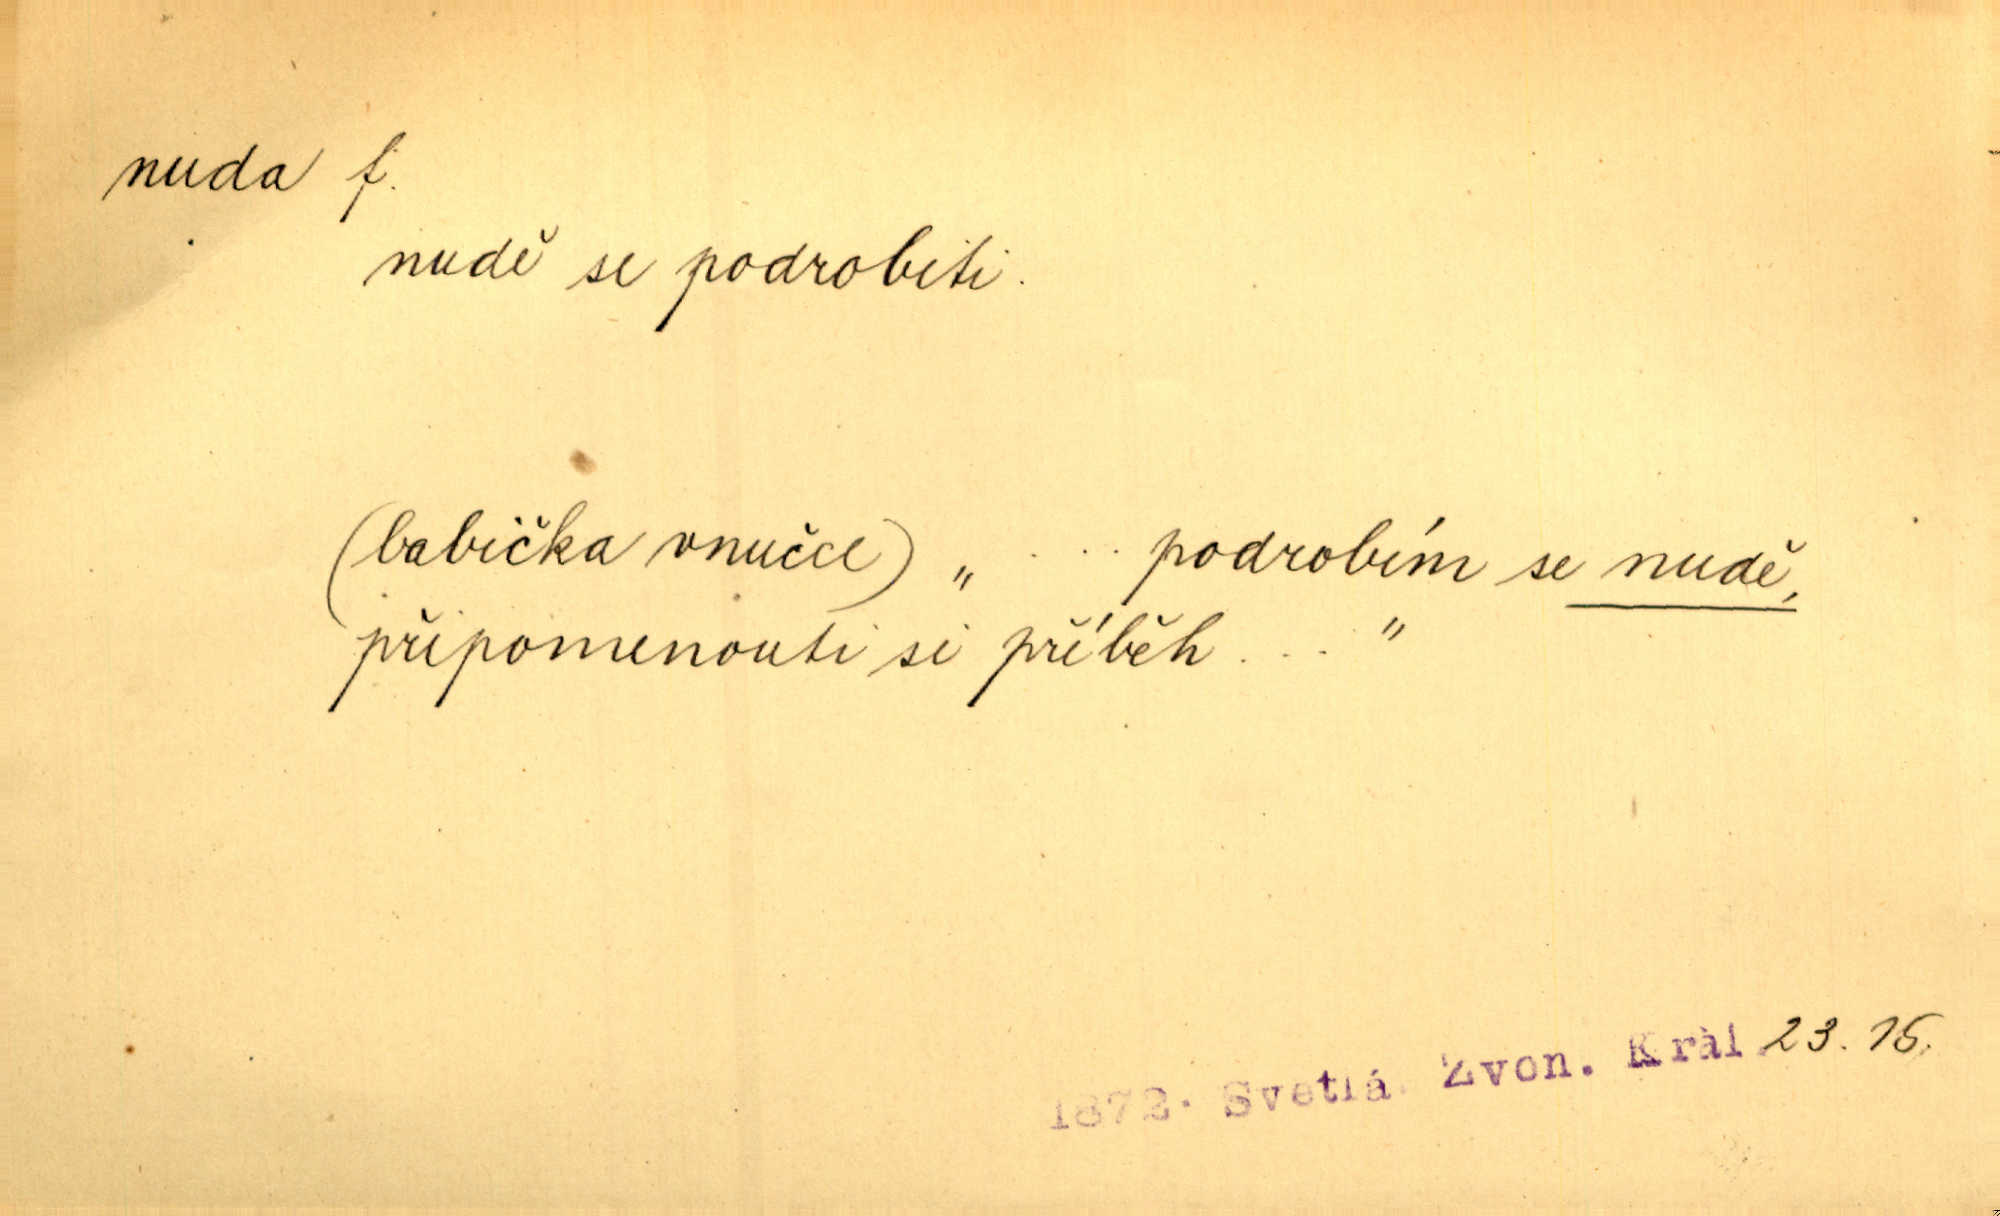 nuda f.
nudě se podrobiti.
(babička vnučce) „ .... podrobím se nudě,
připomenouti si příběh .... "
1872. Svetlá. Zvon. Král 23. 15.